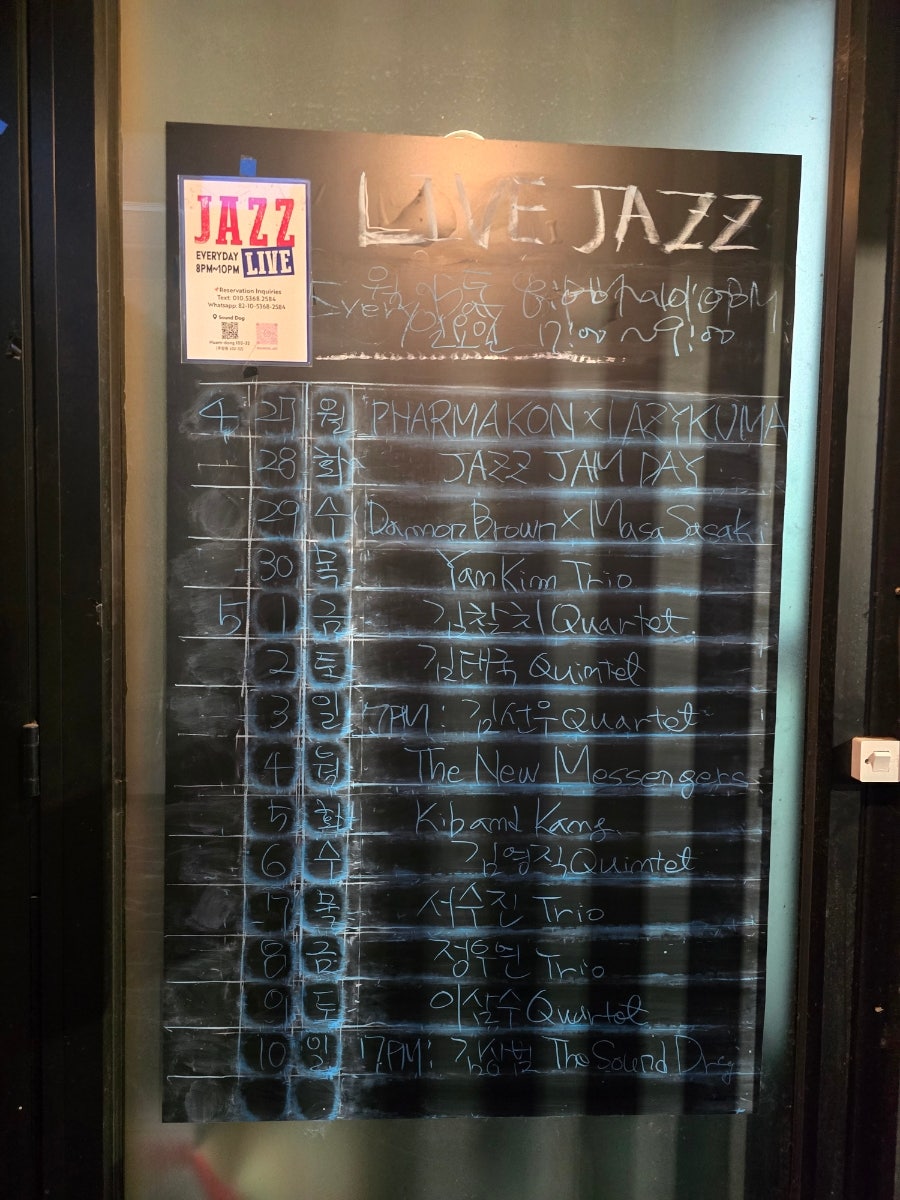 LIVE JAZZ
JAZZ
EVERYDAY
8PM~10PM LIVE
Reservation Inquiries
Text: 010.5368.2584
Whatsapp: 82-10-5368-2584
Sound Dog
Everyday
일요일 7:00~9:00
4 27 월 PHARMAKON x LAZYKUMA
28 화 JAZZ JAM DAY
29 수 Damon Brown x Masa Sasaki
30 목 Yam Kim Trio
5 1 금 Quartet
2 토 김대국 Quintet
3 일 7PM: 김선우 Quartet
4 월 The New Messengers
5 화 Kib and Kang
6 수 김영직 Quintet
7 목 서수진 Trio
8 금 정우연 Trio
9 토 이삼수 Quartet
10 일 7PM: 김상범 The Sound Dog